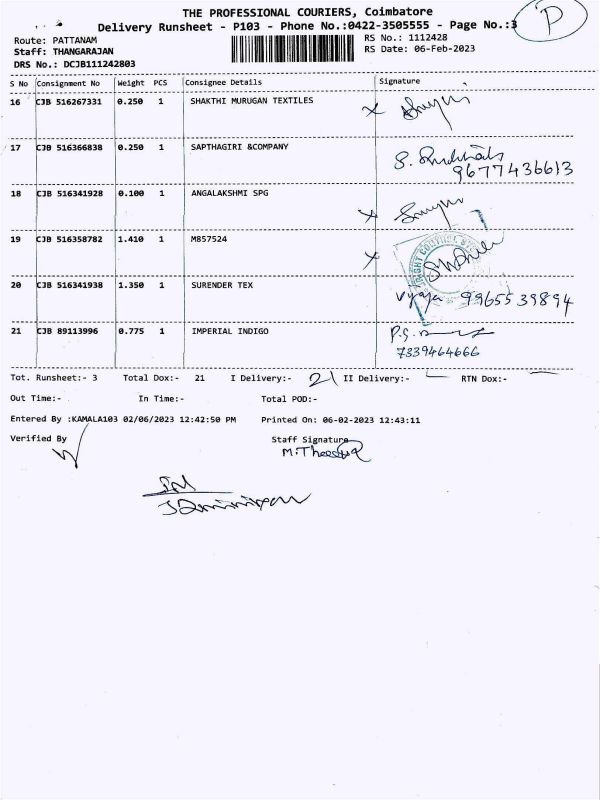 THE PROFESSIONAL COURIERS, Coimbatore
Delivery Runsheet - P103 - Phone No.:0422-3505555 - Page No.:3
P
Route: PATTANAM
RS No.: 1112428
Staff: THANGARAJAN
RS Date: 06-Feb-2023
DRS No.: DCJB111242803
S No Consignment No Weight PCS Consignee Details Signature
16 CJB 516267331 0.250 1 SHAKTHI MURUGAN TEXTILES
17 CJB 516366838 0.250 1 SAPTHAGIRI &COMPANY
9677436613
18 CJB 516341928 0.100 1 ANGALAKSHMI SPG
19 CJB 516358782 1.410 1 M857524
20 CJB 516341938 1.350 1 SURENDER TEX
99655 39894
21 CJB 89113996 0.775 1 IMPERIAL INDIGO P.S.
7339464666
Tot. Runsheet:- 3 Total Dox:- 21 I Delivery:- 21 II Delivery:- RTN Dox:-
Out Time:- In Time:- Total POD:-
Entered By :KAMALA103 02/06/2023 12:42:50 PM Printed On: 06-02-2023 12:43:11
Verified By Staff Signature